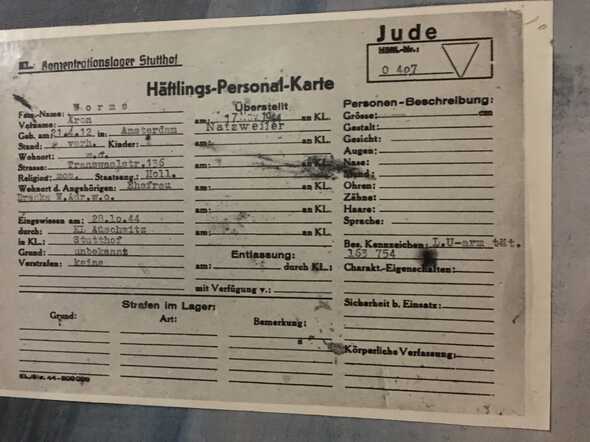 Jude
KL: Konzentrationslager Stutthof
Häftl.-Nr.:
0 4o7
Häftlings-Personal-Karte
Fam.-Name: Worms
Vorname: Aron
Geb. am 21.4.12 in: Amsterdam
Stand: verh. Kinder:
Wohnort:
Strasse: Transvaalstr.136
Religion: mos. Staatsang: Holl.
Wohnort d. Angehörigen: Ehefrau
W.Adr.w.o.
Eingewiesen am: 28.10.44
durch: KL Auschwitz
in KL: Stutthof
Grund: unbekannt
Vorstrafen: keine
Überstellt
am: 17 1944 an KL.
Natzweiler
am: an KL.
am: an KL.
am: an KL.
am: an KL.
am: an KL.
Entlassung:
am: durch KL:
mit Verfügung v.:
Personen-Beschreibung:
Grösse: cm
Gestalt:
Gesicht:
Augen:
Nase:
Mund:
Ohren:
Zähne:
Haare:
Sprache:
Bes. Kennzeichen: L.U-arm tät.
163 754
Charakt.-Eigenschaften:
Sicherheit b. Einsatz:
Körperliche Verfassung:
Strafen im Lager:
Grund: Art: Bemerkung: